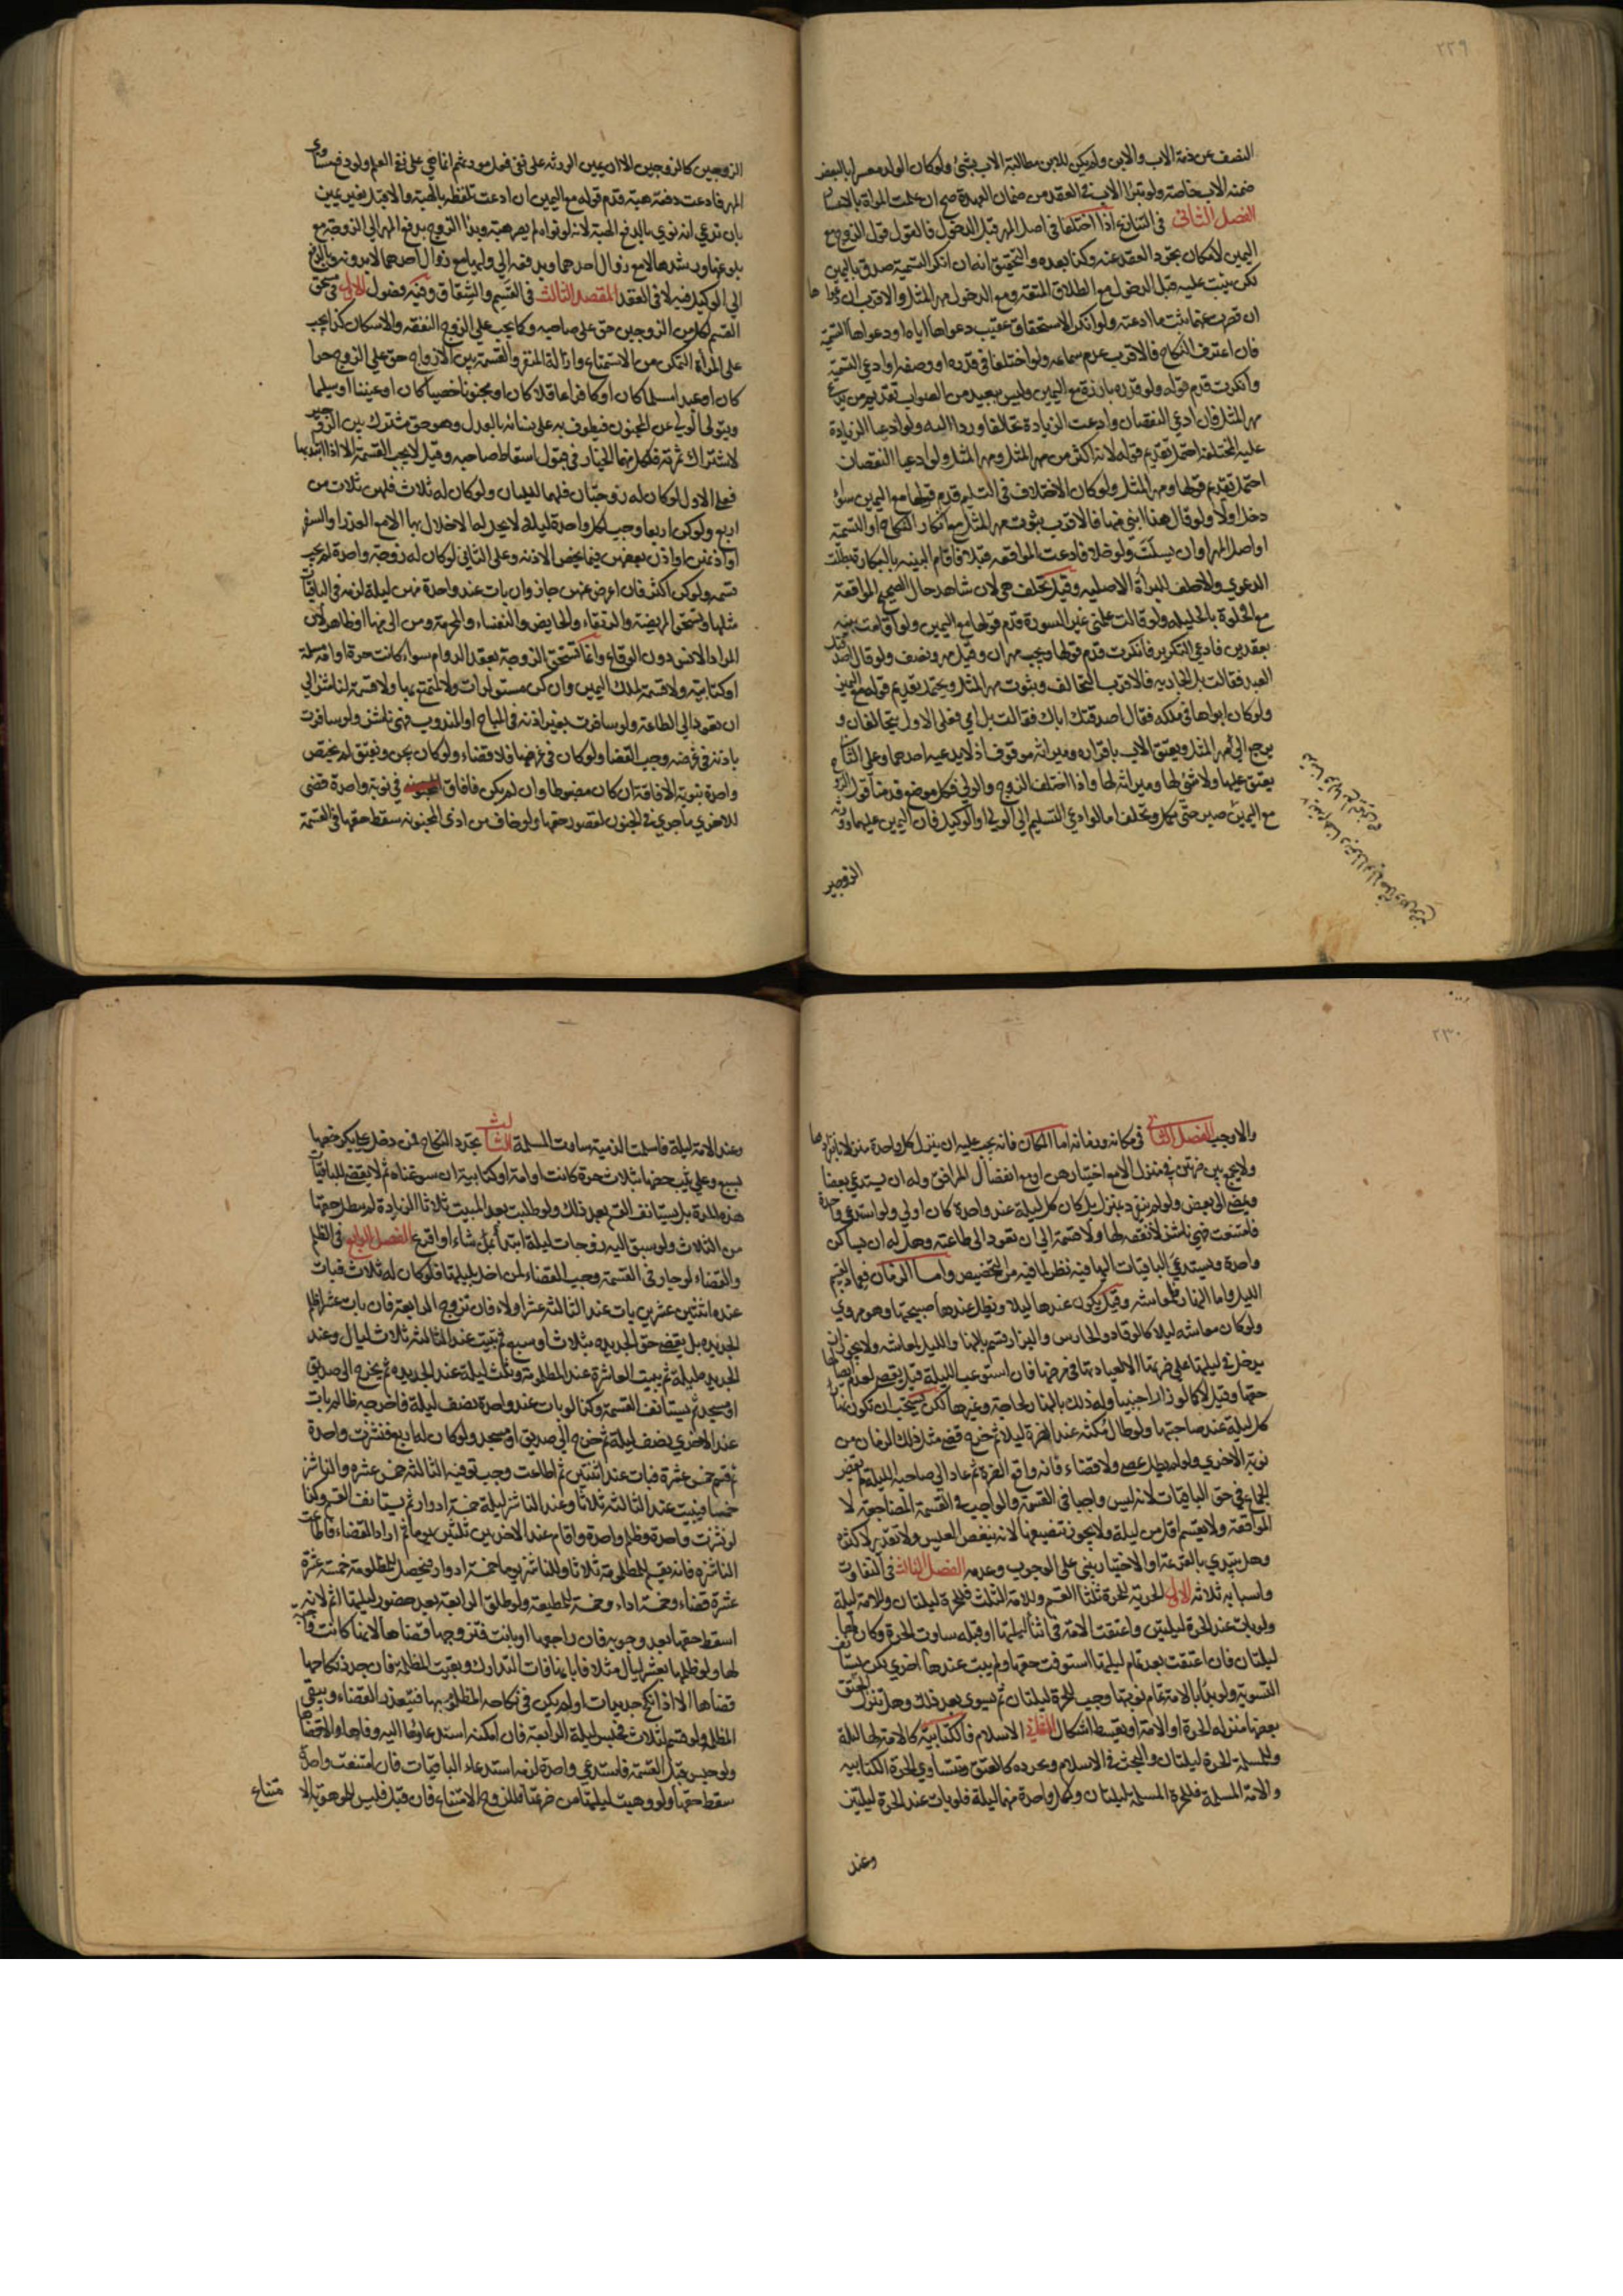 ٢٢٩
النصف عن ذمة الاب والابن ولم يكن للابن مطالبة الاب بشئ ولو كان الولد معسرا بالبعض
ضمنه الاب خاصة ولو تبرأ الاب في العقد من ضمان العهدة صح ان علمت المرأة بالاعسار
الفصل الثاني في التنازع اذا اختلفا في اصل المهر قبل الدخول فالقول قول الزوج مع
اليمين لامكان تجرد العقد عنه وكذا بعده والتحقيق انه ان انكر التسمية صدق باليمين
لكن يثبت عليه قبل الدخول مع الطلاق المتعة ومع الدخول مهر المثل والاقرب ان دعواها
ان قصرت عنهما ثبت ما ادعته ولو انكر الاستحقاق عقيب دعواها اياه او دعواها التسمية
فان اعترف النكاح فالاقرب عدم سماعه ولو اختلفا في قدره او وصفه او ادعى التسمية
وانكرت قدم قوله ولو قدره بارزة مع اليمين وليس ببعيد من الصواب تقديم من يدعي
مهر المثل فان ادعى النقصان وادعت الزيادة تحالفا وردا اليه ولو ادعيا الزيادة
عليه المختلفة احتمل تقديم قوله لانه اكثر من مهر المثل ومهر المثل ولو ادعيا النقصان
احتمل تقديم قولها ومهر المثل ولو كان الاختلاف في التسليم قدم قولها مع اليمين سواء
دخل اولا ولو قال هذا ابني منها فالاقرب ثبوت مهر المثل مع انكار النكاح او التسمية
او اصل المهر او ان يسكت ولو خلا فادعت المواقعة قبلا فاقام البينة بالبكارة بطلت
الدعوى والا حلف للبرأة الاصلية وقيل تحلف هي لان شاهد حال الصحيح المواقعة
مع الخلوة بالحليلة ولو قالت علمني غير السورة قدم قولها مع اليمين ولو اقامت بينه
بعقدين فادعى التكرير فانكرت قدم قولها ويجب مهران وقيل مهر ونصف ولو قال اصدقتك
العبد فقالت بل الجارية فالاقرب التحالف وثبوت مهر المثل ويحتمل تقديم قوله مع اليمين
ولو كان ابواها في ملكه فقال اصدقتك اباك فقالت بل امي فعلى الاول يتحالفان و
يرجع الى مهر المثل ويعتق الاب باقراره وميراثه موقوف اذ لا يدعيه احدهما وعلى الثاني
يعتق عليها ولا شئ لها وميراثه لها واذا اختلف الزوج والولي فكل موضع قدمنا قول الزوج
مع اليمين صبر حتى تكمل وتحلف اما لو ادعى التسليم الى الولي او الوكيل فان اليمين عليهما دون
الزوجين
الزوجين كالزوجين الا ان يمين الورثة على نفي فعل مورثهم انما هي على نفي العلم ولو دفع مساوي
المهر فادعت دفعه هبة قدم قوله مع اليمين ان ادعت تلفظه بالهبة والا قبل بغير يمين
بان تدعي انه نوى بالدفع الهبة لانه لو نواه لم يصر هبة ويبرأ الزوج بدفع المهر الى الزوجة مع
بلوغها ورشدها لا مع زوال احدهما وبدفعه الى وليها مع زوال احدهما لا بدونه وبالدفع
الى الوكيل فيه لا في العقد المقصد الثالث في القسم والشقاق وفيه فصول الاول في مستحق
القسم لكل من الزوجين حق على صاحبه وكما يجب على الزوج النفقة والاسكان كذا يجب
على المرأة التمكين من الاستمتاع وازالة المنفر والقسمة بين الازواج حق على الزوج حرا
كان او عبدا مسلما كان او كافرا عاقلا كان او مجنونا خصيا كان او عنينا او سليما
ويتولى الولي عن المجنون فيطوف به على نسائه بالعدل وهو حق مشترك بين الزوجين
لاشتراك ثمرته فلكل منهما الخيار في قبول اسقاط صاحبه وقيل لا يجب القسمة الا اذا ابتدأ بها
فعلى الاول لو كان له زوجتان فلهما ليلتان ولو كان له ثلاث فلهن ثلاث من
اربع ولو كن اربعا وجب لكل واحدة ليلة لا يحل له الاخلال بها الا مع العذر او السفر
او اذنهن او اذن بعضهن فيما يخص الآذنة وعلى الثاني لو كان له زوجة واحدة لم يجب
قسمة ولو كن اكثر فان اعرض عنهن جاز وان بات عند واحدة منهن ليلة لزمه في الباقيات
مثلها وتستحق المريضة والرتقاء والحايض والنفساء والمحرمة ومن الى منها او ظاهر لان
المراد الانس دون الوقاع وانما تستحق الزوجة بعقد الدوام سواء كانت حرة او امة مسلمة
او كتابية ولا قسمة لملك اليمين وان كن مستولدات ولا لمتمتع بها ولا قسمة لناشز الى
ان تعود الى الطاعة ولو سافرت بغير اذنه في المباح او المندوب فهي ناشز ولو سافرت
باذنه في غرضه وجب القضا ولو كان في غرضها فلا قضاء ولو كان يجن ويفيق لم يختص
واحدة بنوبة الافاقة ان كان مضبوطا وان لم يكن فافاق في نوبة واحدة قضى
للاخرى ما جرى في الجنون لقصور حقها ولو خاف من اذى المجنونة سقط حقها في القسمة
٢٣٠
والا وجب الفصل الثاني في مكانه وزمانه اما المكان فانه يجب عليه ان ينزل كل واحدة منزلا بانفرادها
ولا يجمع بين ضرتين في منزل الا مع اختيارهن او مع انفصال المرافق وله ان يستدعي بعضا
ويمضي الى بعض ولو لم ينفرد بمنزل بل كان كل ليلة عند واحدة كان اولى ولو استدعى واحدة
فامتنعت فهي ناشز لا نفقة لها ولا قسمة الى ان تعود الى طاعته وهل له ان يساكن
واحدة ويستدعي الباقيات اليها فيه نظر لما فيه من التخصيص واما الزمان فعماد القسم
الليل واما النهار فلمعاشه وقيل يكون عندها ليلا ويظل عندها صبيحتها وهو مروي
ولو كان معاشه ليلا كالوقاد والحارس والبزار قسم بالنهار والليل لمعاشه ولا يجوز ان
يدخل في ليلتها على ضرتها الا لعيادتها في مرضها فان استوعب الليلة قيل يقضي لعدم ايصالها
حقها وقيل لا كما لو زار اجنبيا وله ذلك بالنهار لحاجة وغيرها لكن يستحب ان تكون نهار
كل ليلة عند صاحبتها ولو طال مكثه عند الضرة ليلا ثم خرج قضى مثل ذلك الزمان من
نوبة الاخرى ولو لم يطل عصى ولا قضاء فانه واقع الضرة ثم عاد الى صاحبة الليلة لم يقض
الجماع في حق الباقيات لانه ليس واجبا في القسمة والواجب في القسمة المضاجعة لا
المواقعة ولا يقسم اقل من ليلة ولا يجوز تنصيفها لانه ينغص العيش ولا تقدير لاكثره
وهل يبتدي بالقرعة او الاختيار يبنى على الوجوب وعدمه الفصل الثالث في التفاوت
واسبابه ثلاثة الاول الحرية للحرة ثلثا القسم وللامة الثلث فللحرة ليلتان وللامة ليلة
ولو بات عند الحرة ليلتين واعتقت الامة في اثناء ليلتها او قبله ساوت الحرة وكان لها
ليلتان فان اعتقت بعد تمام ليلتها استوفت حقها ولم يبت عندها اخرى لكن يستأنف
التسوية ولو بدأ بالامة تمام نوبتها وجب للحرة ليلتان ثم يسوي بعد ذلك وهل تنزل المعتق
بعضها منزلة الحرة او الامة او يقسط اشكال الاسلام فالكتابية كالامة لها ليلة
وللمسلمة الحرة ليلتان والبحث في الاسلام وتجرده كالعتق وتتساوى الحرة الكتابية
والامة المسلمة فللحرة المسلمة ليلتان ولكل واحدة منهما ليلة فلو بات عند الحرة ليلتين
وعند
وعند الامة ليلة فاسلمت الذمية ساوت المسلمة الثالث تجدد النكاح فمن دخل على بكر خصها
بسبع وعلى ثيب خصها بثلاث حرة كانت او امة او كتابية ان سوغناه ثم لا يقضي للباقيات
هذه المدة بل يستانف القسم بعد ذلك ولو طلبت بعد المبيت ثلاثا الزيادة لم يبطل حقها
من الثلاث ولو سبق اليه زوجات ليلة ابتدأ بمن شاء او اقرع الفصل الرابع في الظلم
والقضاء لو جار في القسمة وجب القضاء لمن اخل بليلتها فلو كان له ثلاث فبات
عند اثنتين عشرين بات عند الثالثة عشرا ولاء فان تزوج الرابعة فان بات عشرا ظلم
الجديدة بل يقضي حق الجديدة بثلاث او سبع ثم يبيت عند الثالثة ثلاث ليال وعند
الجديدة ليلة ثم يبيت العاشرة عند المظلومة وثلث ليلة عند الجديدة ثم يخرج الى صديق
او مسجد ثم يستانف القسمة وكذا لو بات عند واحدة نصف ليلة فاخرجه ظالم بات
عند الاخرى نصف ليلة ثم خرج الى صديق او مسجد ولو كان له اربع فنشزت واحدة
ثم قسم خمس عشرة فبات عند اثنتين ثم اطاعت وجب توفية الثالثة خمس عشرة والناشز
خمسا فيبيت عند الثالثة ثلاثا وعند الناشز ليلة خمسة ادوار ثم يستانف القسم وكذا
لو نشزت واحدة وظلم واحدة واقام عند الاخريين ثلثين يوما ثم اراد القضاء فاطاعت
الناشزة فانه يقسم للمظلومة ثلاثا وللناشز يوما خمسة ادوار فيحصل للمظلومة خمسة عشرة
عشرة قضاء وخمسة اداء وخمسة للمطيعة ولو طلق الرابعة بعد حضور ليلتها اثم لانه
اسقط حقها بعد وجوبه فان راجعها او بانت فتزوجها قضاها لانها كانت واجبة
لها ولو ظلمها بعشر ليال مثلا فابانها فات التدارك وبقيت المظلمة فان جدد نكاحها
قضاها الا اذا نكح جديدات او لم يكن في نكاحه المظلوم بها فيتعذر القضاء ويبقى
المظلم ولو قسم لثلاث فحبس ليلة الرابعة فان امكنه استدعاؤها اليه وفاها والا قضاها
ولو حبس قبل القسمة فاستدعى واحدة لزمه استدعاء الباقيات فان امتنعت واحدة
سقط حقها ولو وهبت ليلتها من ضرتها فللزوج الامتناع فان قبل فليس للموهوبة الا
متناع